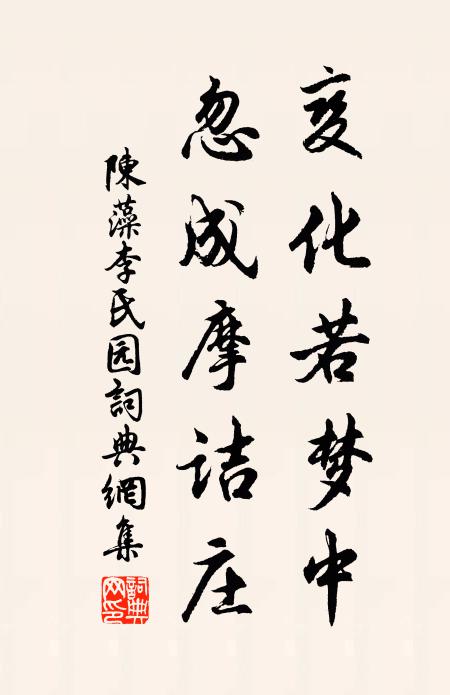 变化若梦中
忽成摩诘庄
陳藻李氏园詞典網集
詞典网印